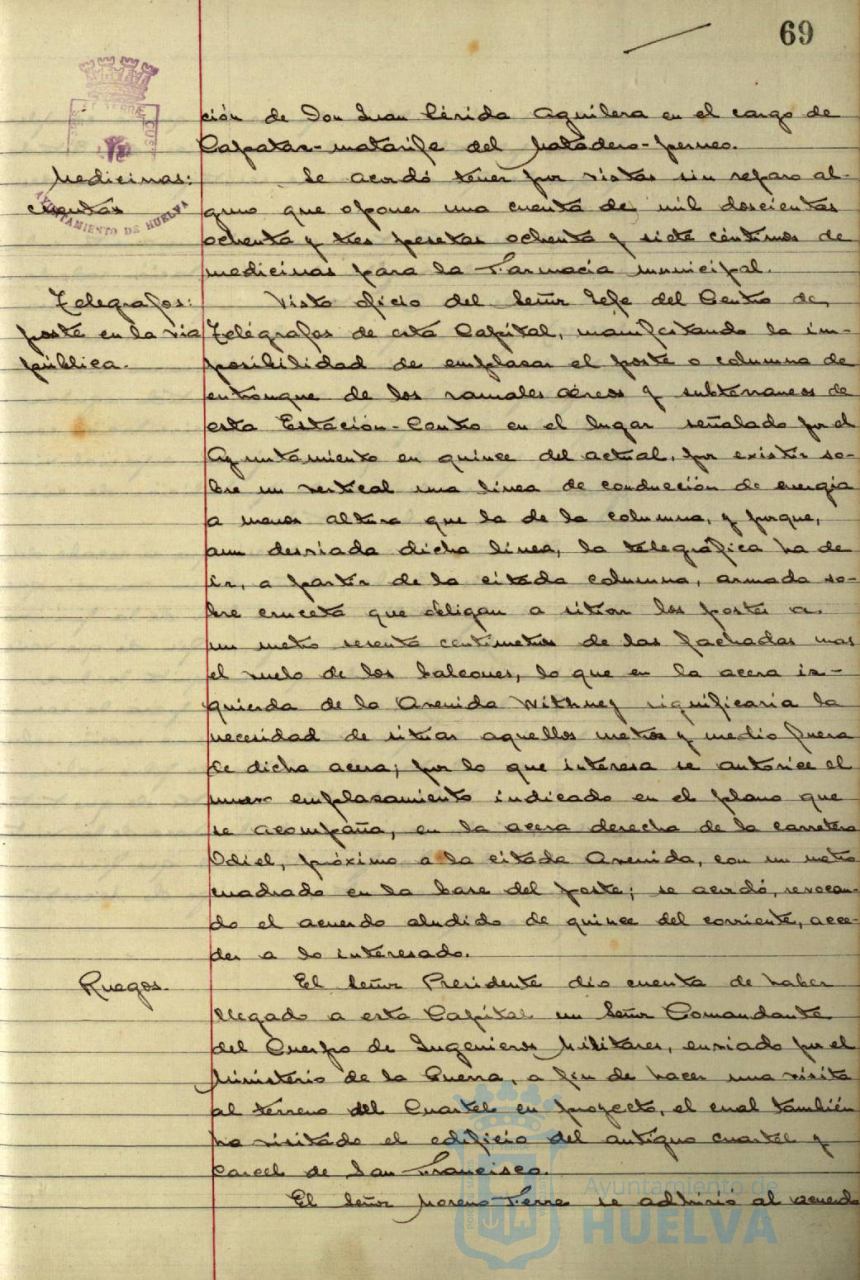 69
ción de Don Juan Cérida Aguilera en el cargo de
Capataz-matarife del Matadero-perneo.
Medicinas:
cuentas
Se acordó tener por vistas sin reparo al-
guno que oponer una cuenta de mil doscientas
ochenta y tres pesetas ochenta y siete céntimos de
medicinas para la Farmacia municipal.
Telégrafos:
poste en la vía
pública.
Visto oficio del Señor Jefe del Centro de
Telégrafos de esta Capital, manifestando la im-
posibilidad de emplazar el poste o columna de
entronque de los ramales aéreos y subterráneos de
esta Estación-Centro en el lugar señalado por el
Ayuntamiento en quince del actual, por existir so-
bre un vertical una línea de conducción de energía
a menos altura que la de la columna, y porque,
aun desviada dicha línea, la telegráfica ha de
ir, a partir de la citada columna, armada so-
bre cruceta que obligan a situar los postes a
un metro sesenta centímetros de las fachadas mas
el vuelo de los balcones, lo que en la acera iz-
quierda de la Avenida Withney significaría la
necesidad de situar aquellos metro y medio fuera
de dicha acera; por lo que interesa se autorice el
nuevo emplazamiento indicado en el plano que
se acompaña, en la acera derecha de la carretera
Odiel, próximo a la citada Avenida, con un metro
cuadrado en la base del poste; se acordó, revocan-
do el acuerdo aludido de quince del corriente, acce-
der a lo interesado.
Ruegos.
El Señor Presidente dio cuenta de haber
llegado a esta Capital un Señor Comandante
del Cuerpo de Ingenieros Militares, enviado por el
Ministerio de la Guerra, a fin de hacer una visita
al terreno del Cuartel en proyecto, el cual también
ha visitado el edificio del antiguo cuartel y
carcel de San Francisco.
El Señor Moreno Ferre se adhirió al acuerdo
AYUNTAMIENTO DE HUELVA
Ayuntamiento de
HUELVA